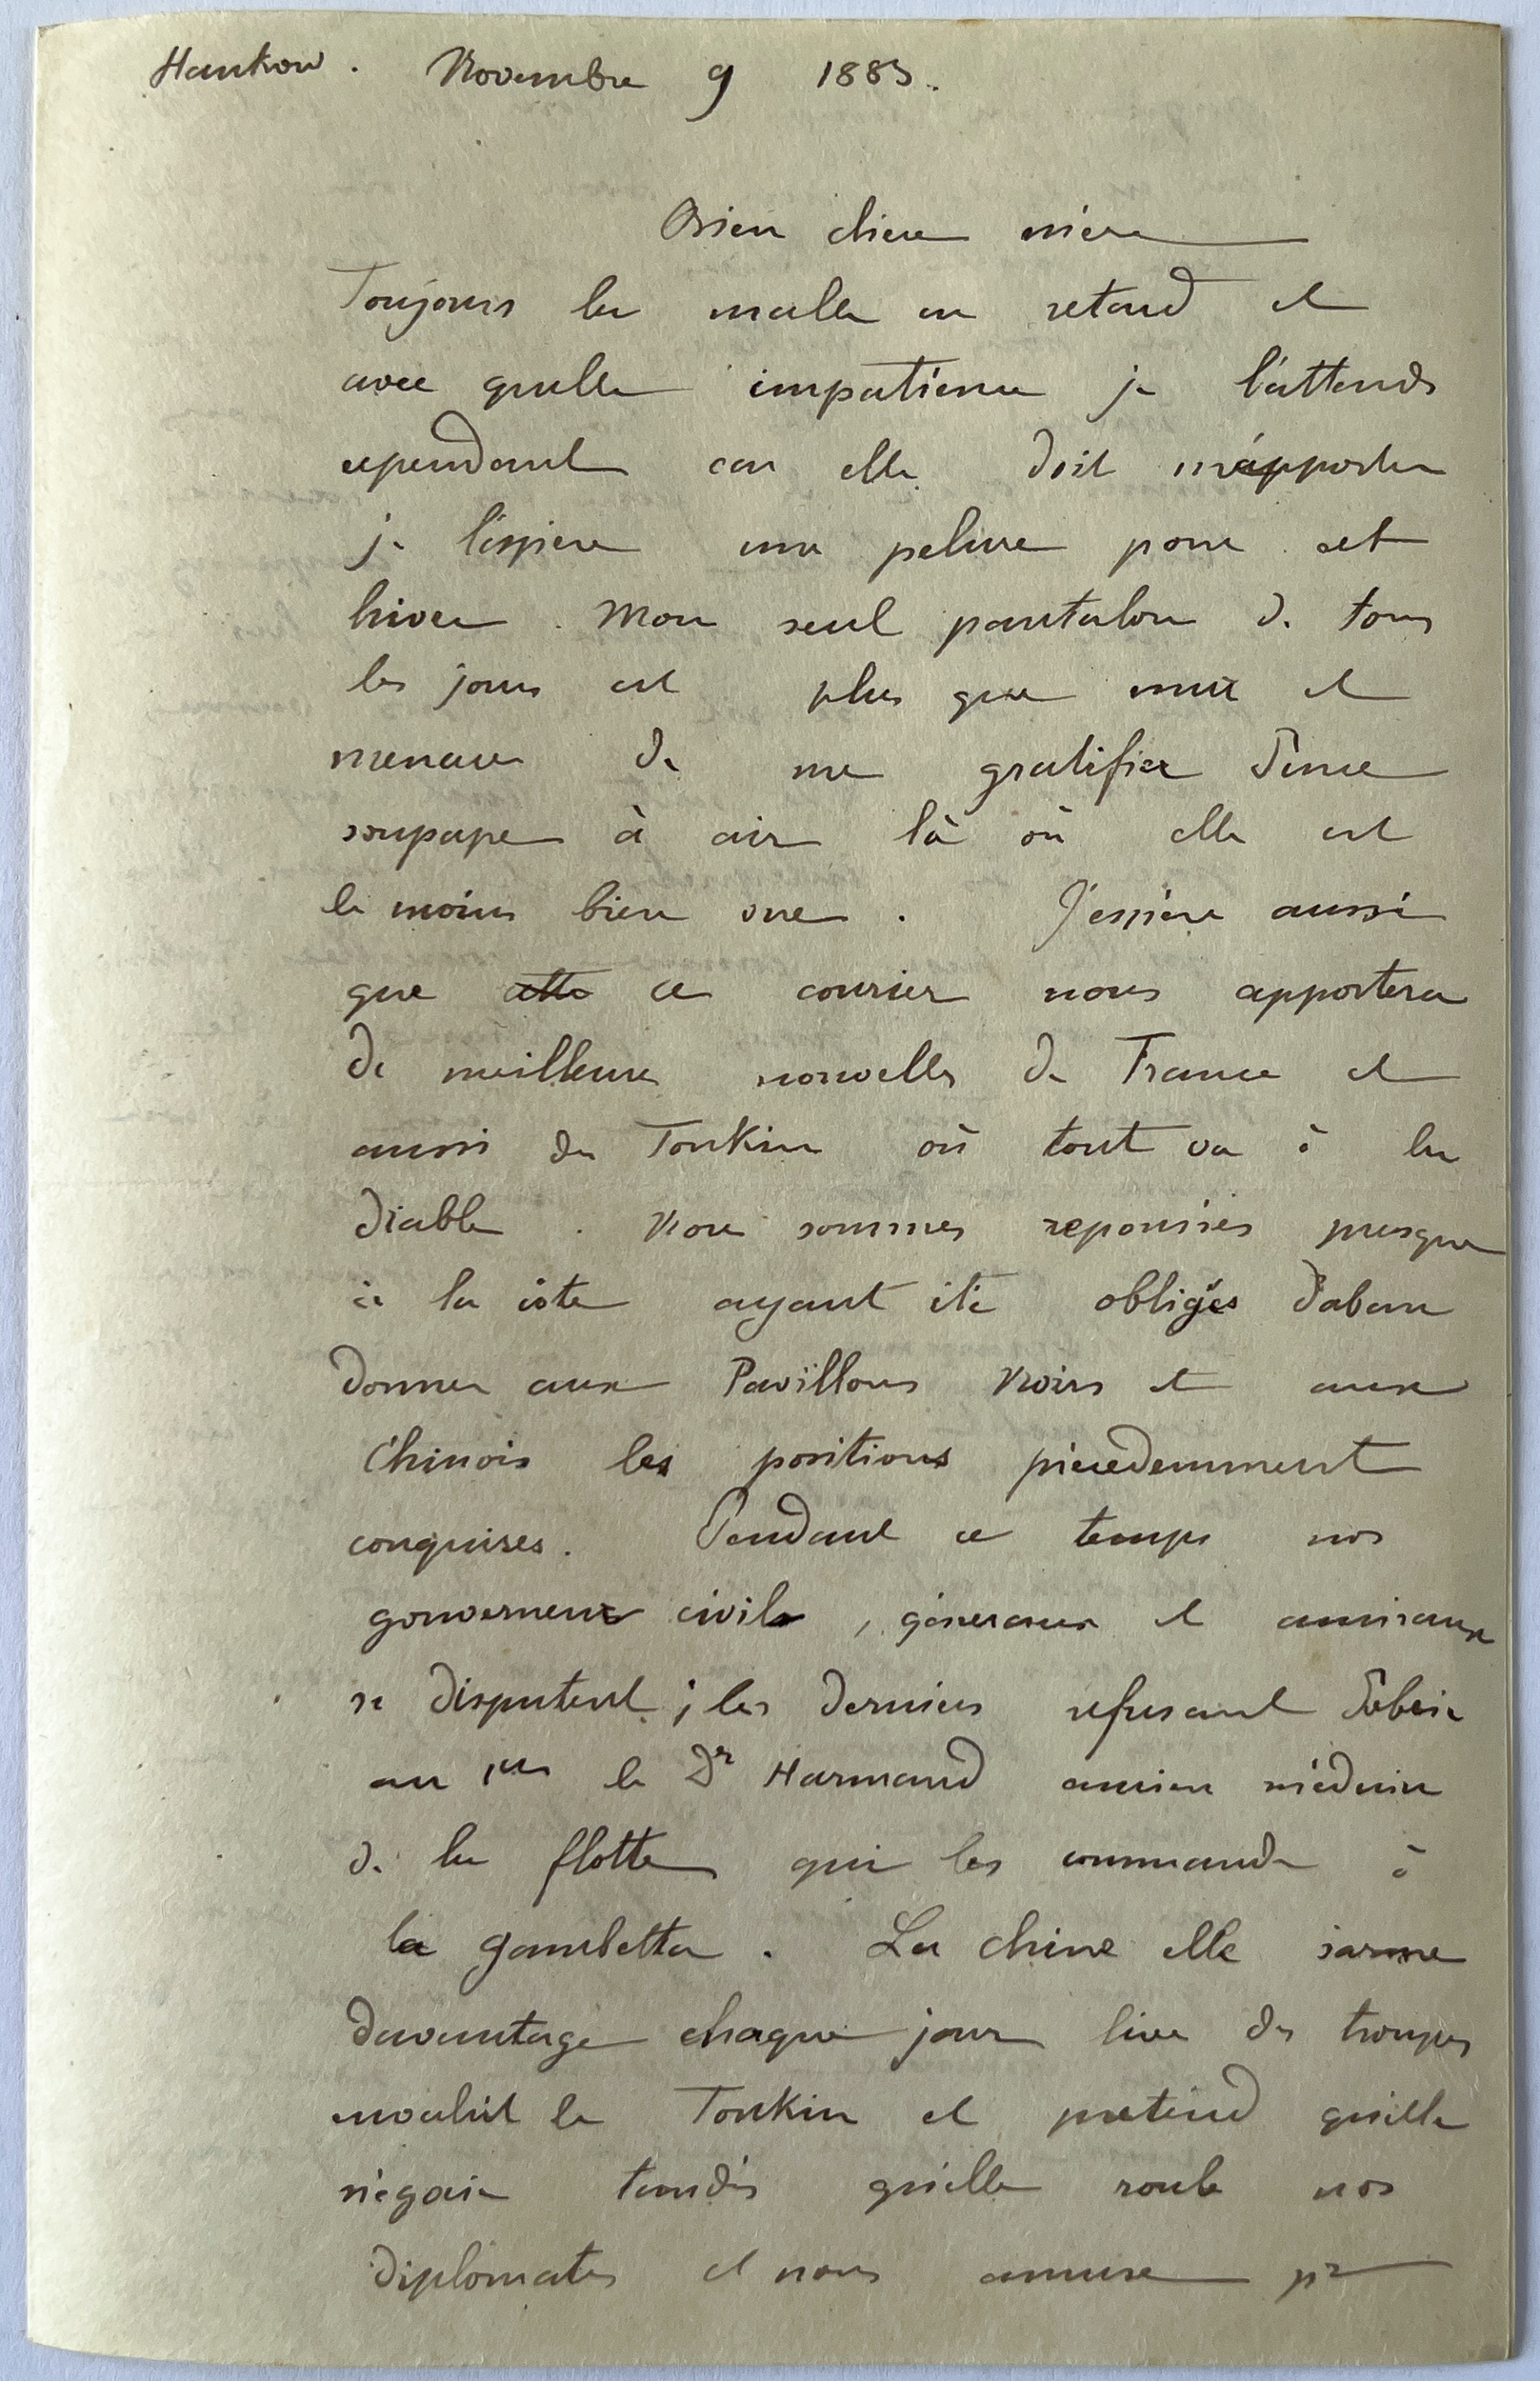 Hankow. Novembre 9 1883.
Bien chère mère
Toujours la malle en retard et
avec quelle impatience je l'attends
cependant car elle doit m'apporter
je l'espère une pelure pour cet
hiver. Mon seul pantalon de tous
les jours est plus que mûr et
menace de me gratifier d'une
soupape à air là où elle est
le moins bien vue. J'espère aussi
que cette ce courier nous apportera
de meilleures nouvelles de France et
aussi du Tonkin où tout va à la
diable. Nous sommes repoussés presque
à la côte ayant été obligés d'aban
donner aux Pavillons Noirs et aux
Chinois les positions précedemment
conquises. Pendant ce temps nos
gouverneur civil, géneraux et amiraux
se disputent; les derniers refusant d'obéir
au 1er le Dr Harmand ancien médecin
de la flotte qui les commande à
la gambetta. La chine elle s'arme
davantage chaque jour lève des troupes
envahit le Tonkin et prétend qu'elle
négocie tandis qu'elle roule nos
diplomates et nous amuse pr